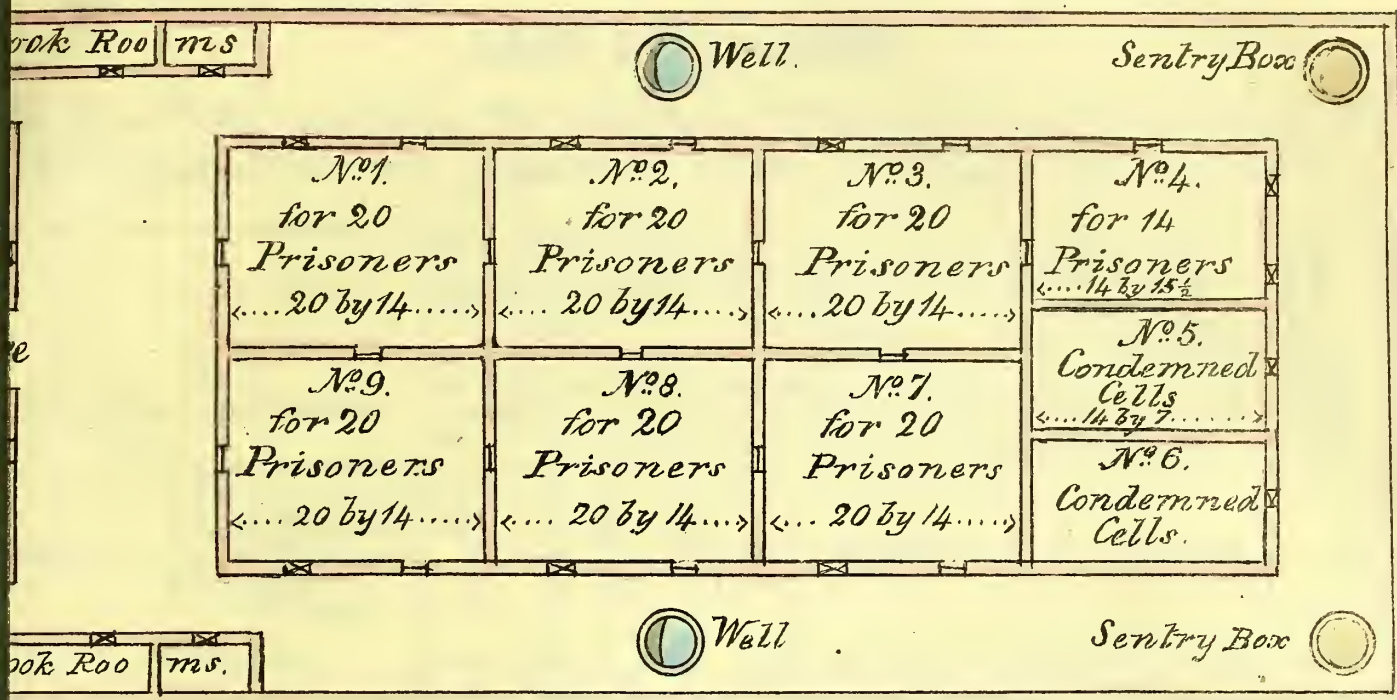 ook Roo ms
Well.
Sentry Box
No. 1.
for 20
Prisoners
<....20 by 14.....>
No. 2.
for 20
Prisoners
<.... 20 by 14....>
No. 3.
for 20
Prisoners
<....20 by 14.....>
No. 4.
for 14
Prisoners
<....14 by 15½
No. 5.
Condemned
Cells
<....14 by 7.......>
No. 6.
Condemned
Cells.
No. 9.
for 20
Prisoners
<.... 20 by 14.....>
No. 8.
for 20
Prisoners
<.... 20 by 14....>
No. 7.
for 20
Prisoners
<... 20 by 14.....>
e
ook Roo ms.
Well
Sentry Box